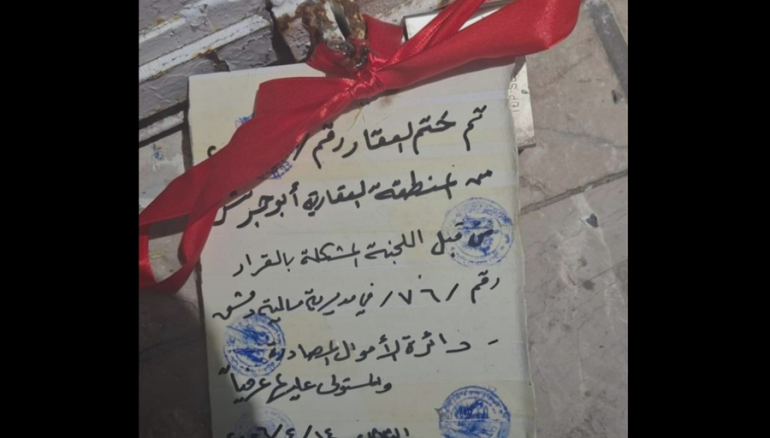 تم ختم العقار رقم /
من المنطقة العقارية أبو جرش
من قبل اللجنة المشكلة بالقرار
رقم /٧٠٦/ في مديرية مالية دمشق
- دائرة الأموال المصادرة
والمستولى عليها عرفياً